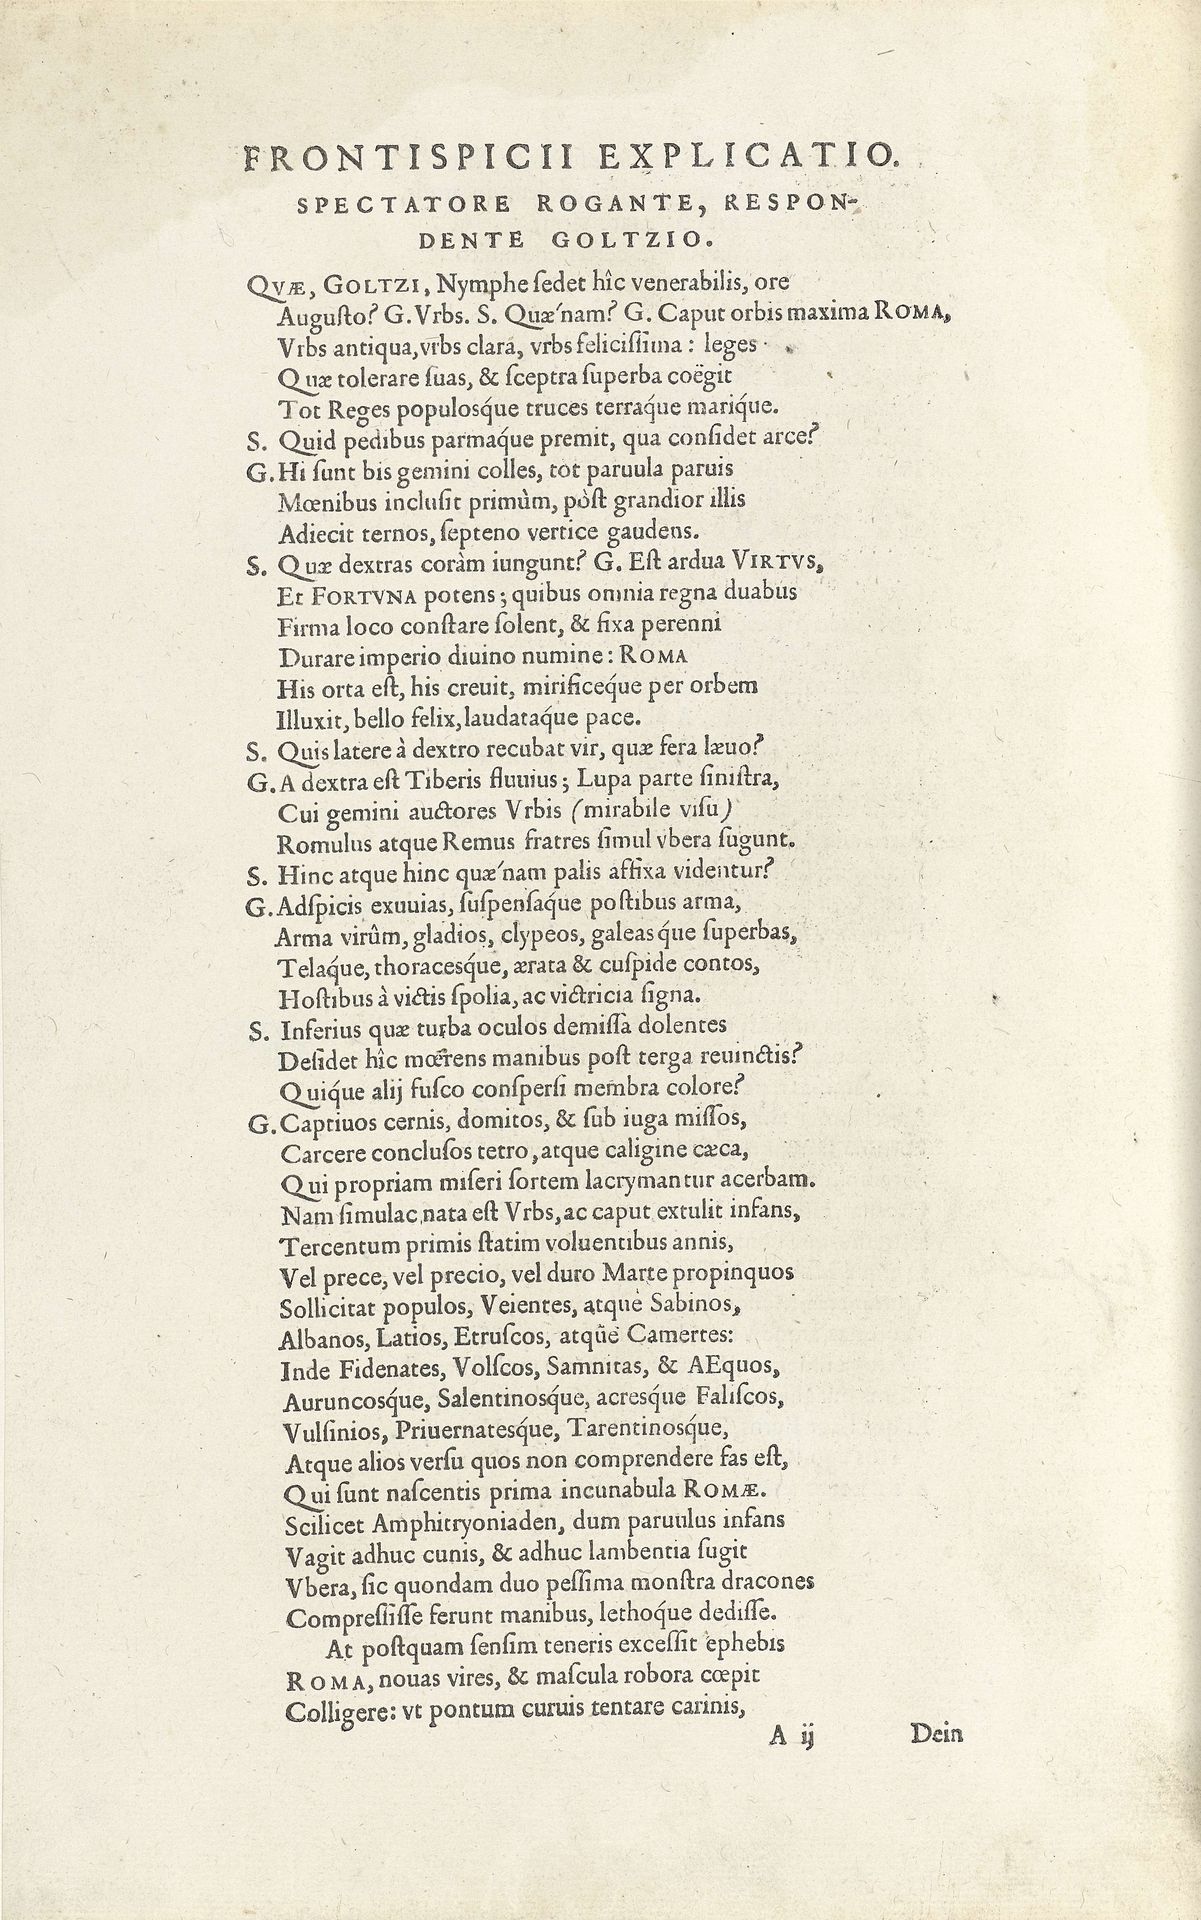 FRONTISPICII EXPLICATIO.
SPECTATORE ROGANTE, RESPON-
DENTE GOLTZIO.
QVÆ, GOLTZI, Nymphe ſedet hîc venerabilis, ore
Auguſto? G. Vrbs. S. Quæ'nam? G. Caput orbis maxima ROMA,
Vrbs antiqua, vrbs clara, vrbs feliciſſima: leges
Quæ tolerare ſuas, & ſceptra ſuperba coëgit
Tot Reges populosq́ue truces terraq́ue mariq́ue.
S. Quid pedibus parmaq́ue premit, qua conſidet arce?
G. Hi ſunt bis gemini colles, tot paruula paruis
Mœnibus incluſit primùm, pòſt grandior illis
Adiecit ternos, ſepteno vertice gaudens.
S. Quæ dextras coràm iungunt? G. Eſt ardua VIRTVS,
Et FORTVNA potens; quibus omnia regna duabus
Firma loco conſtare ſolent, & fixa perenni
Durare imperio diuino numine: ROMA
His orta eſt, his creuit, mirificeq́ue per orbem
Illuxit, bello felix, laudataq́ue pace.
S. Quis latere à dextro recubat vir, quæ fera læuo?
G. A dextra eſt Tiberis fluuius; Lupa parte ſiniſtra,
Cui gemini auctores Vrbis (mirabile viſu)
Romulus atque Remus fratres ſimul vbera ſugunt.
S. Hinc atque hinc quæ'nam palis affixa videntur?
G. Adſpicis exuuias, ſuſpenſaq́ue poſtibus arma,
Arma virûm, gladios, clypeos, galeasq́ue ſuperbas,
Telaq́ue, thoracesq́ue, ærata & cuſpide contos,
Hoſtibus à victis ſpolia, ac victricia ſigna.
S. Inferius quæ turba oculos demiſſa dolentes
Deſidet hîc mœrens manibus poſt terga reuinctis?
Quiq́ue alij fuſco conſperſi membra colore?
G. Captiuos cernis, domitos, & ſub iuga miſſos,
Carcere concluſos tetro, atque caligine cæca,
Qui propriam miſeri ſortem lacrymantur acerbam.
Nam ſimulac nata eſt Vrbs, ac caput extulit infans,
Tercentum primis ſtatim voluentibus annis,
Vel prece, vel precio, vel duro Marte propinquos
Sollicitat populos, Veientes, atque Sabinos,
Albanos, Latios, Etruſcos, atque Camertes:
Inde Fidenates, Volſcos, Samnitas, & AEquos,
Auruncosq́ue, Salentinosq́ue, acresque Faliſcos,
Vulſinios, Priuernatesq́ue, Tarentinosq́ue,
Atque alios verſu quos non comprendere fas eſt,
Qui ſunt naſcentis prima incunabula ROMÆ.
Scilicet Amphitryoniaden, dum paruulus infans
Vagit adhuc cunis, & adhuc lambentia ſugit
Vbera, ſic quondam duo peſſima monſtra dracones
Compreſſiſſe ferunt manibus, lethoq́ue dediſſe.
At poſtquam ſenſim teneris exceſſit ephebis
ROMA, nouas vires, & maſcula robora cœpit
Colligere: vt pontum curuis tentare carinis,
A ij Dein